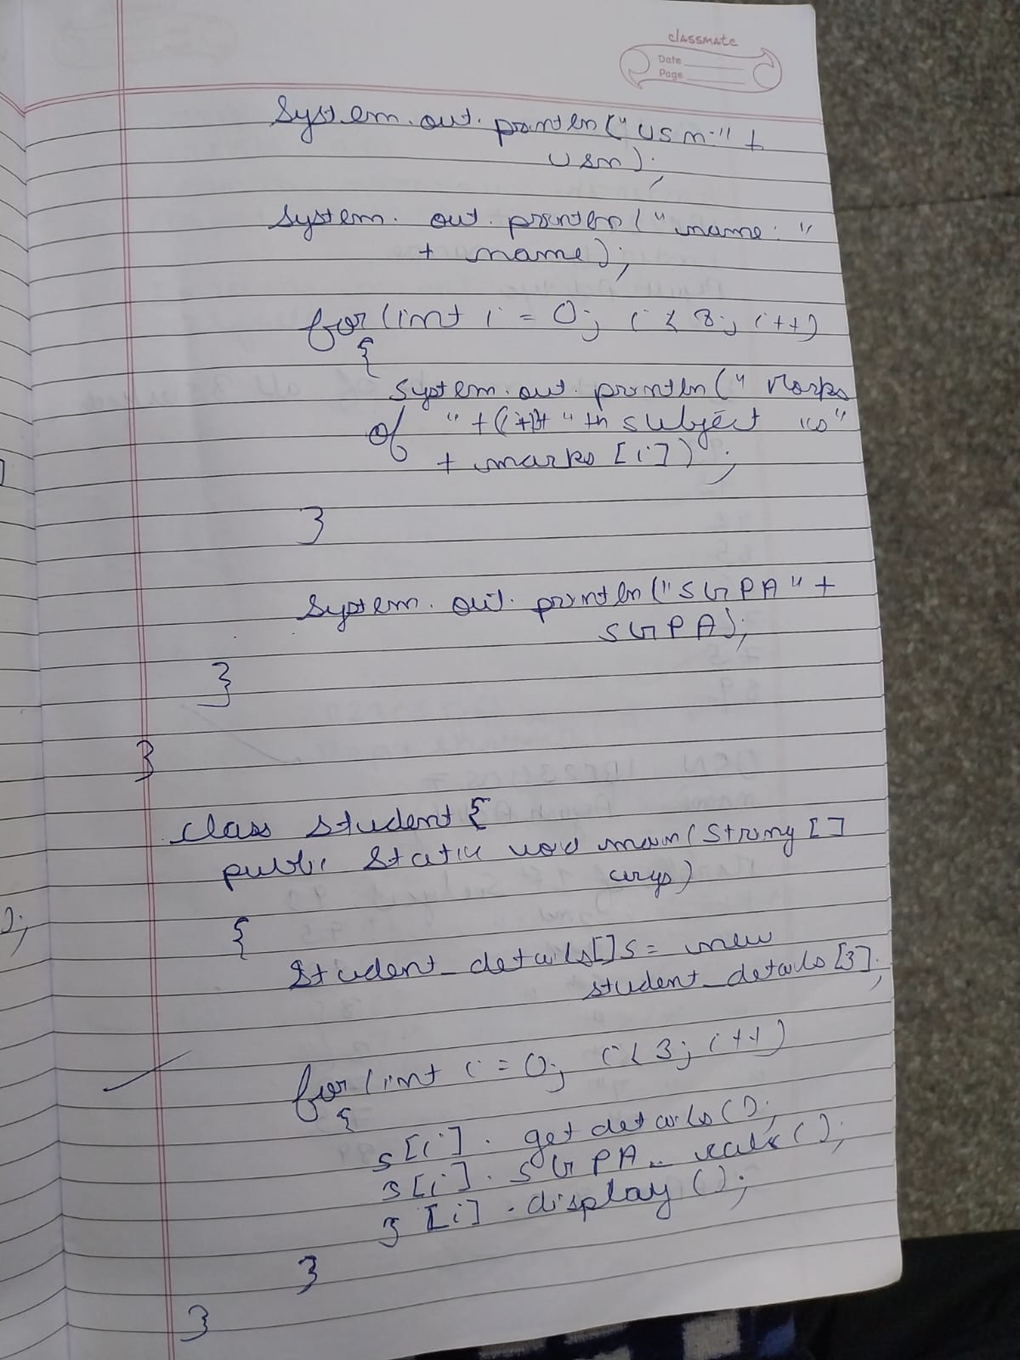 classmate
Date
Page
System.out.println("usn:" +
usn);
System.out.println("name: "
+ name);
for(int i = 0; i < 8; i++)
{
System.out.println("Marks
of "+(i+1)+ "th subject is"
+ marks[i]);
}
System.out.println("SGPA" +
SGPA);
}
}
class Student {
public static void main(String[]
args)
{
Student_details[]s= new
student_details[3];
for(int i=0; i<3; i++)
{
s[i].getdetails();
s[i].SGPA_calc();
s[i].display();
}
}
);